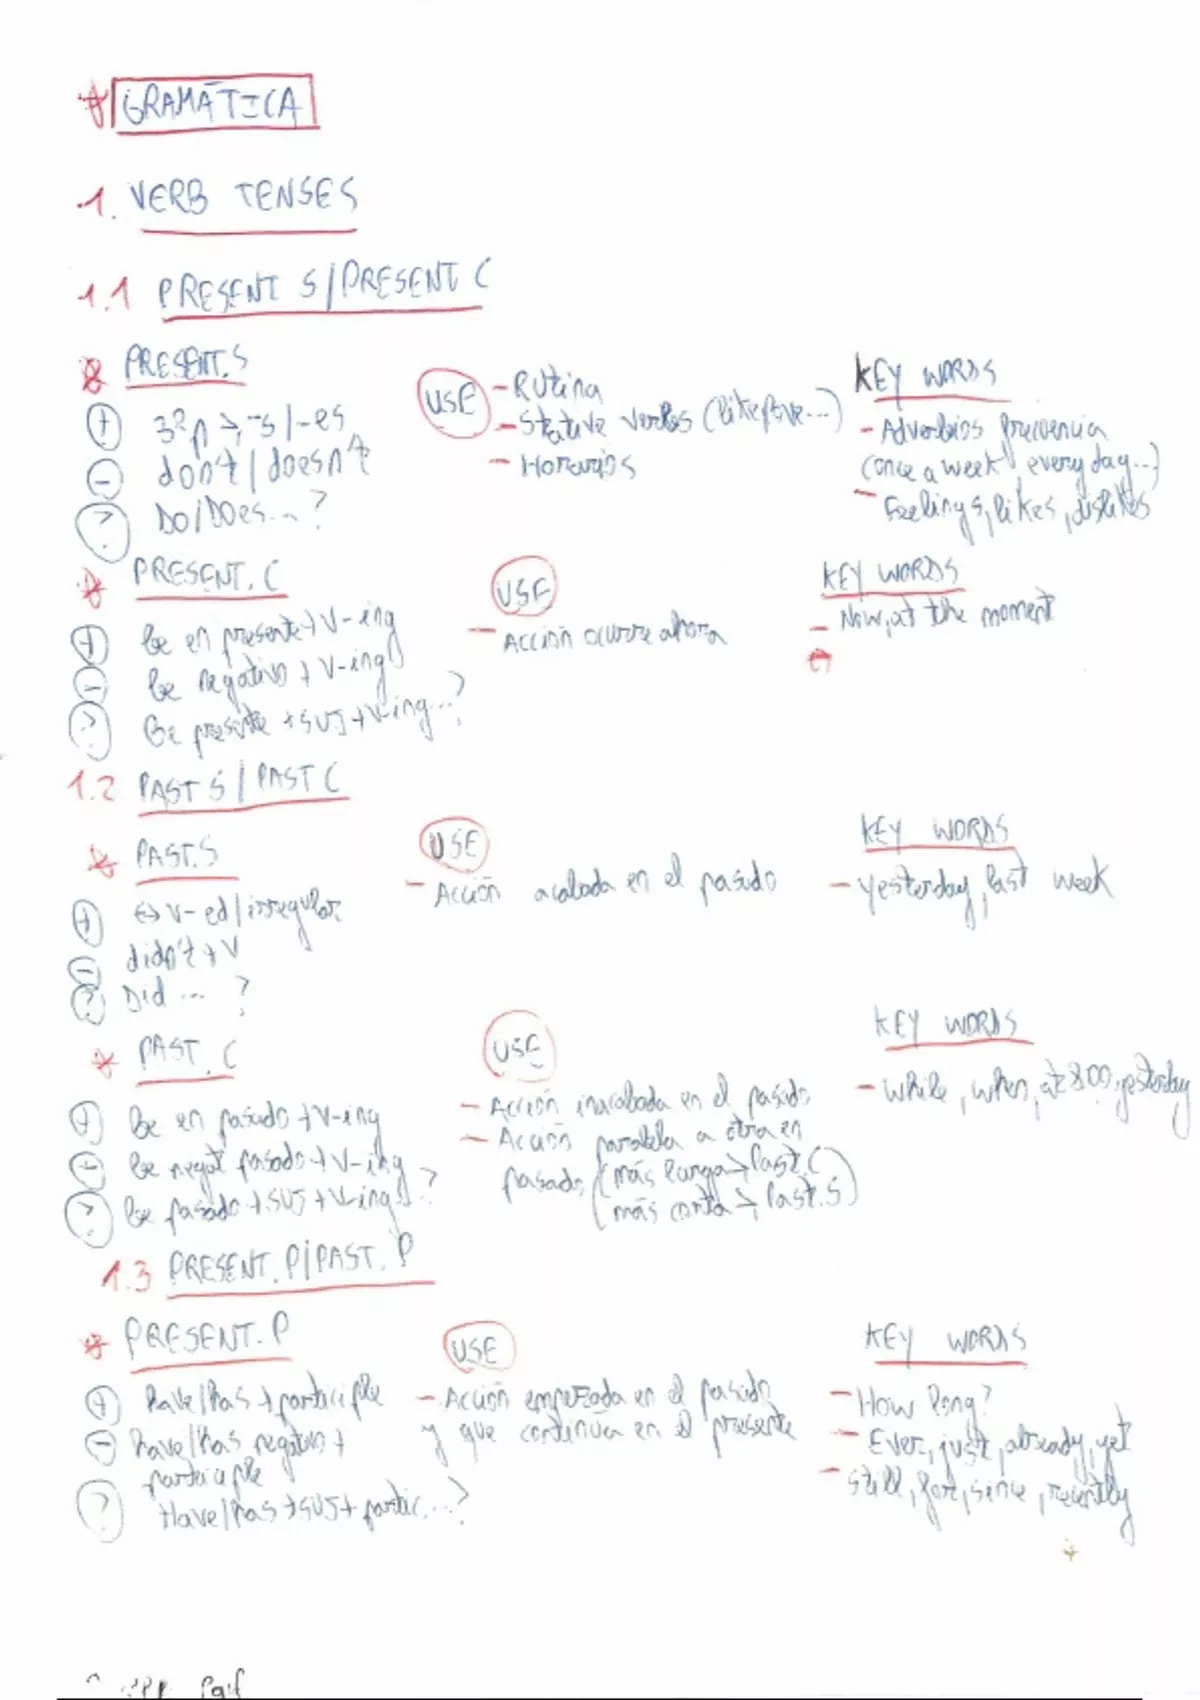 GRAMÁTICA
1. VERB TENSES
1.1 PRESENT S/PRESENT C
PRESENT.S
+ 3ªp → -s/-es
- don't/doesn't
? Do/Does...?
USE
- Rutina
- Stative verbs (like, love...)
- Horarios
KEY WORDS
- Adverbios frecuencia
(once a week, every day...)
- Feelings, likes, dislikes
PRESENT.C
+ be en presente + V-ing
- be negativo + V-ing
? Be presente + SUJ + V-ing...?
USE
- Acción ocurre ahora
KEY WORDS
- Now, at the moment
1.2 PAST S/PAST C
PAST.S
+ V-ed/irregular
- didn't + V
? Did ... ?
USE
- Acción acabada en el pasado
KEY WORDS
- yesterday, last week
PAST.C
+ be en pasado + V-ing
- be negat pasado + V-ing
? be pasado + SUJ + V-ing?
USE
- Acción inacabada en el pasado
- Acción paralela a otra en
pasado (más larga → Past.C)
(más corta → Past.S)
KEY WORDS
- While, when, at 8:00, yesterday
1.3 PRESENT.P/PAST.P
PRESENT.P
+ have/has + participle
- have/has negativo +
participle
? Have/has + SUJ + partic...?
USE
- Acción empezada en el pasado
y que continúa en el presente
KEY WORDS
- How long?
- Ever, just, already, yet
- still, for, since, recently